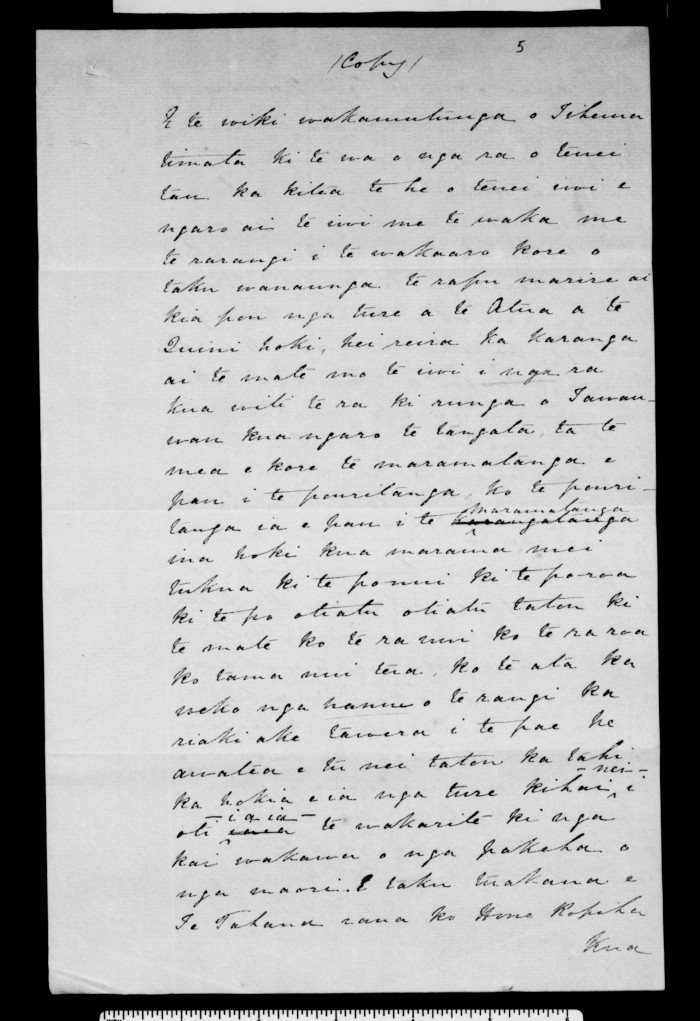 5
(Copy)
E te wiki wakamutunga o Tihema
timata ki te wa o nga ra o tenei
tau ka kitea te he o tenei iwi e
ngaro ai te iwi me te waka me
te rarangi i te wakaaro kore o
taku wanaunga te rapu marire ai
kia pou nga ture a te Atua a te
Quini hoki, hei reira ka karanga
ai te mate mo te iwi i nga ra
kua witi te ra ki runga o Tawau-
wau kua ngaro te tangata, ta te
mea e kore te maramatanga e
pau i te pouritanga, ko te pouri-
maramatanga
tanga ia e pau i te karangatanga
ina hoki kua marama mei
tukua ki te ponui ki te poroa
ki te po otiatu otiatu tatou ki
te mate ko te ra nui ko te ra roa
ko tama nui tera, ko te ata ka
weko nga hanue o te rangi ka
riaki ake tawera i te pae he
awatea e tu nei tatou ka tahi
-nei-
ka hokia e ia nga ture kihai i
-iaia-
oti te wakarite ki nga
kai wakawa o nga pakeha o
nga maori. E taku matkana e
Te Tahana raua ko Hone Ropiha
Kua